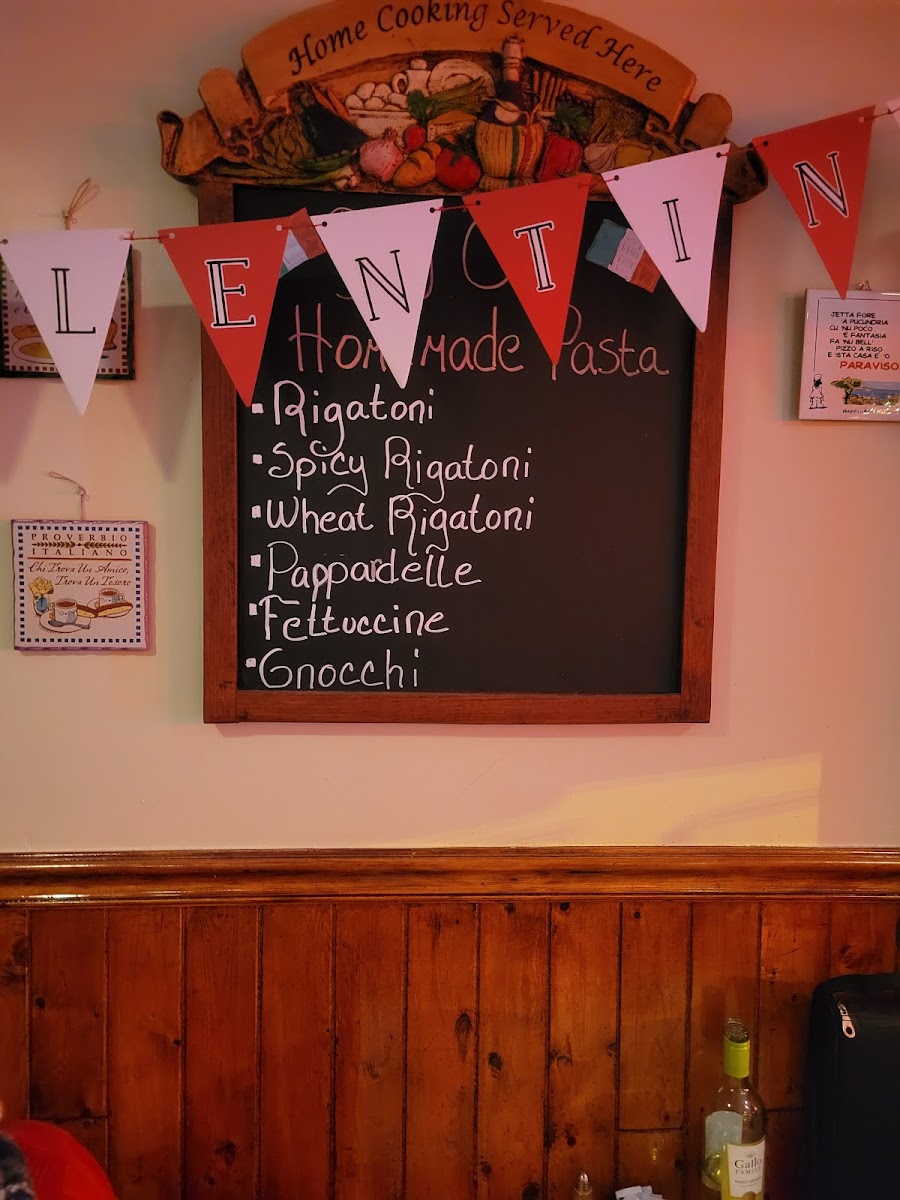 Home Cooking Served Here
L E N T I N
Homemade Pasta
· Rigatoni
· Spicy Rigatoni
· Wheat Rigatoni
· Pappardelle
· Fettuccine
· Gnocchi
JETTA FORE
'A PUCUNDRIA
CU 'NU POCO
'E FANTASIA
FA 'NU BELL'
PIZZO A RISO
E 'STA CASA E' 'O
PARAVISO
PROVERBIO
ITALIANO
Chi Trova Un Amico,
Trova Un Tesoro
Gallo
FAMILY